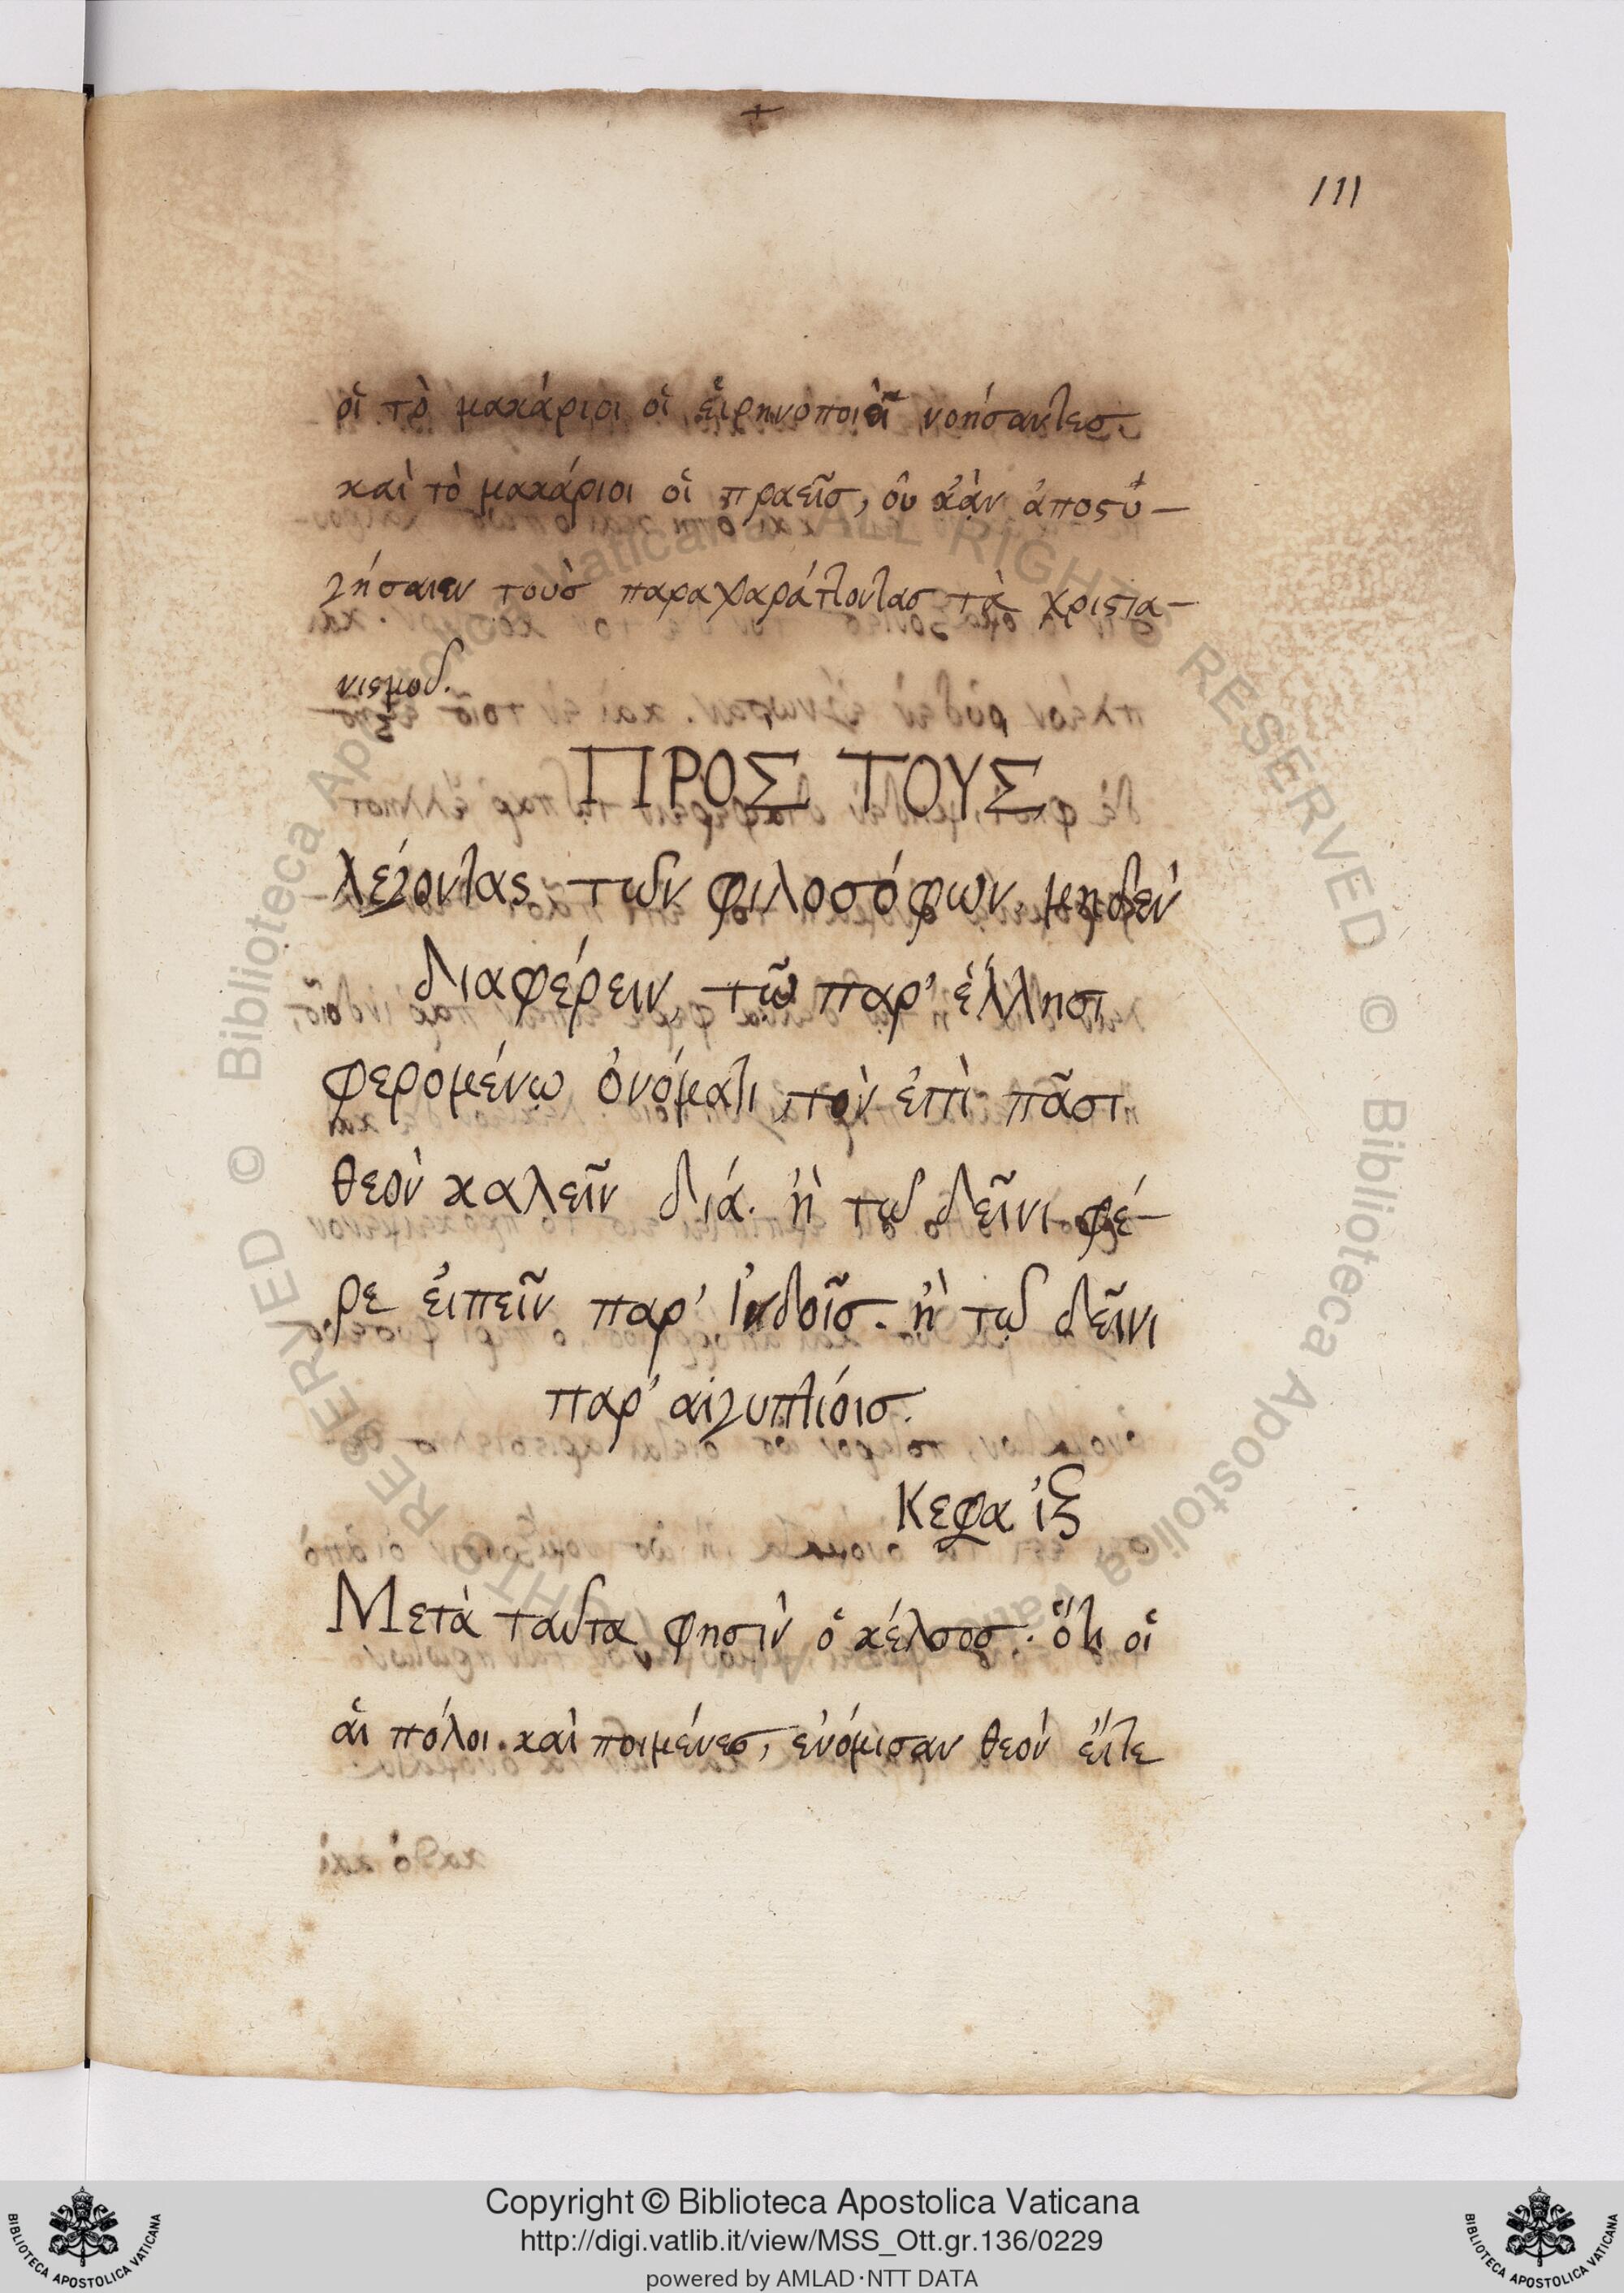 111
οἱ τὸ μακάριοι οἱ εἰρηνοποιοὶ νοήσαντες.
καὶ τὸ μακάριοι οἱ πραεῖς, οὐ κἀν ἀποστυ-
γήσαιεν τοὺς παραχαράττοντας τὰ χριστια-
νισμοῦ.
ΠΡΟΣ ΤΟΥΣ
λέγοντας τῶν φιλοσόφων μηδὲν
διαφέρειν, τῶ παρ' ἕλλησι
φερομένω ὀνόματι τὸν ἐπὶ πᾶσι
θεὸν καλεῖν διά. ἢ τῶ δεῖνι φέ-
ρε εἰπεῖν παρ' ἰνδοῖς. ἢ τῶ δεῖνι
παρ' αἰγυπτίοις.
Κεφα ιξ
Μετὰ ταῦτα φησὶν ὁ κέλσος. ὅτι οἱ
αἱ πόλοι καὶ ποιμένες, ἐνόμισαν θεὸν εἴτε
Copyright © Biblioteca Apostolica Vaticana
http://digi.vatlib.it/view/MSS_Ott.gr.136/0229
powered by AMLAD·NTT DATA
BIBLIOTECA APOSTOLICA VATICANA
BIBLIOTECA APOSTOLICA VATICANA
© Biblioteca Apostolica Vaticana ALL RIGHTS RESERVED © Biblioteca Apostolica Vaticana ALL RIGHTS RESERVED